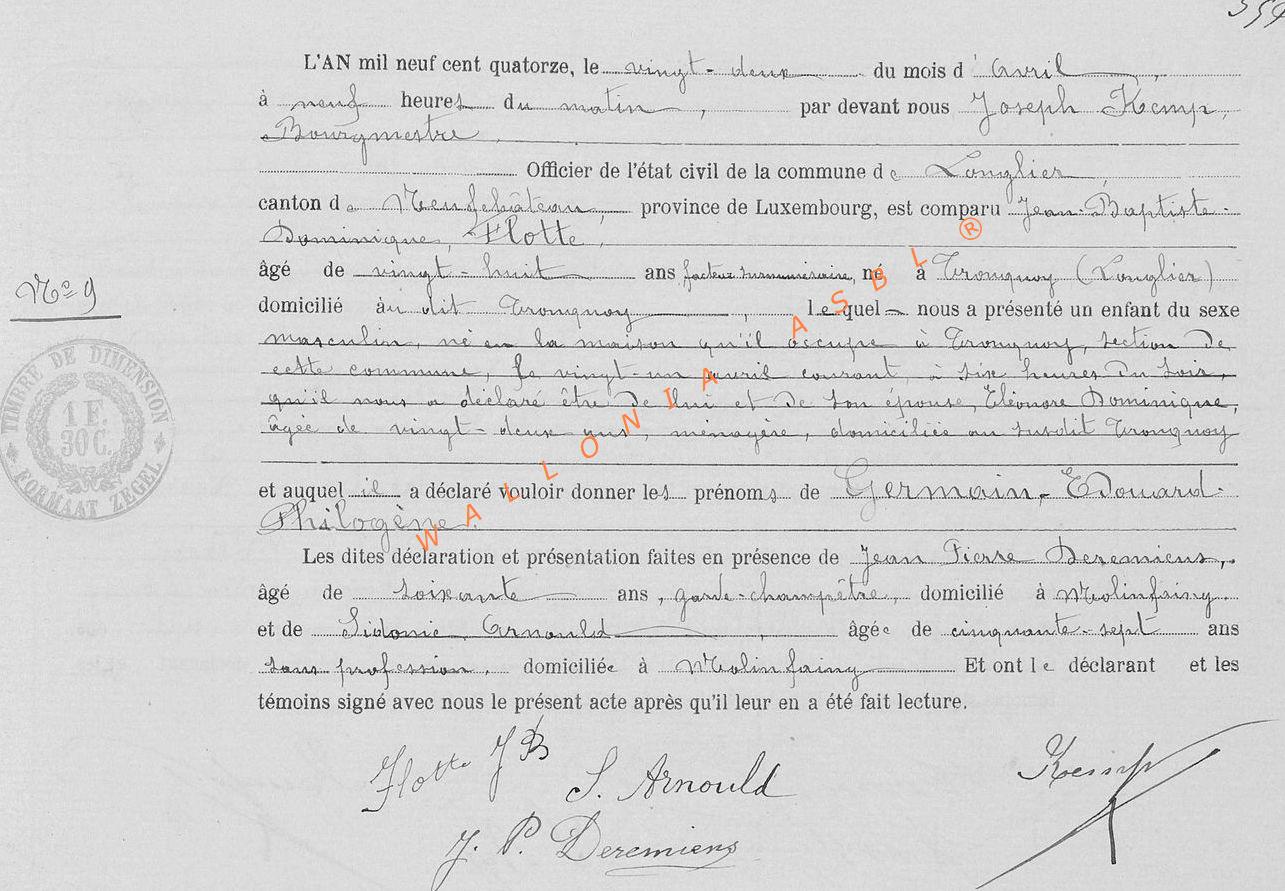 L'AN mil neuf cent quatorze, le vingt-deux du mois d'Avril,
à neuf heures du matin, par devant nous Joseph Kemp,
Bourgmestre,
Officier de l'état civil de la commune de Longlier,
canton de Neufchâteau, province de Luxembourg, est comparu Jean-Baptiste-
Dominique, Flotte,
âgé de vingt-huit ans, facteur surnuméraire, né à Tronquoy (Longlier)
domicilié au dit Tronquoy, lequel nous a présenté un enfant du sexe
Nº 9
masculin, né en la maison qu'il occupe à Tronquoy, section de
cette commune, le vingt-un avril courant, à six heures du soir,
qu'il nous a déclaré être de lui et de son épouse, Eléonore Dominique,
âgée de vingt-deux ans, ménagère, domiciliée au susdit Tronquoy
TIMBRE DE DIMENSION
1 F.
30 C.
FORMAAT ZEGEL
et auquel il a déclaré vouloir donner les prénoms de Germain-Edouard-
Philogène.
Les dites déclaration et présentation faites en présence de Jean Pierre Deremiens,
âgé de soixante ans, garde-champêtre, domicilié à Molinfaing
et de Sidonie Arnould, âgée de cinquante-sept ans
sans profession, domiciliée à Molinfaing Et ont le déclarant et les
témoins signé avec nous le présent acte après qu'il leur en a été fait lecture.
Flotte JB
S. Arnould
Kemp
J. P. Deremiens
WALLONIA ASBL ®